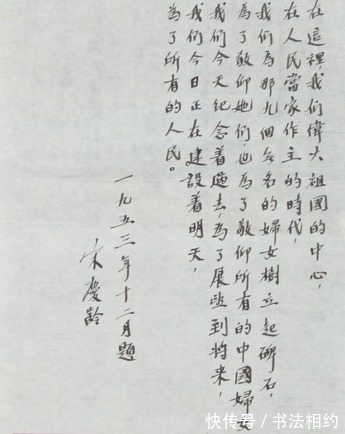 在這裡,我们偉大祖國的中心,
在人民當家作主的時代,
我们為那九個無名的婦女樹立起碑石,
為了敬仰她们,也為了敬仰所有的中國婦女
我们今天紀念着過去,為了展望到將来,
我们今日正在建設着明天,
為了所有的人民。
一九五三年十二月題
宋慶齡
快传号/书法相约